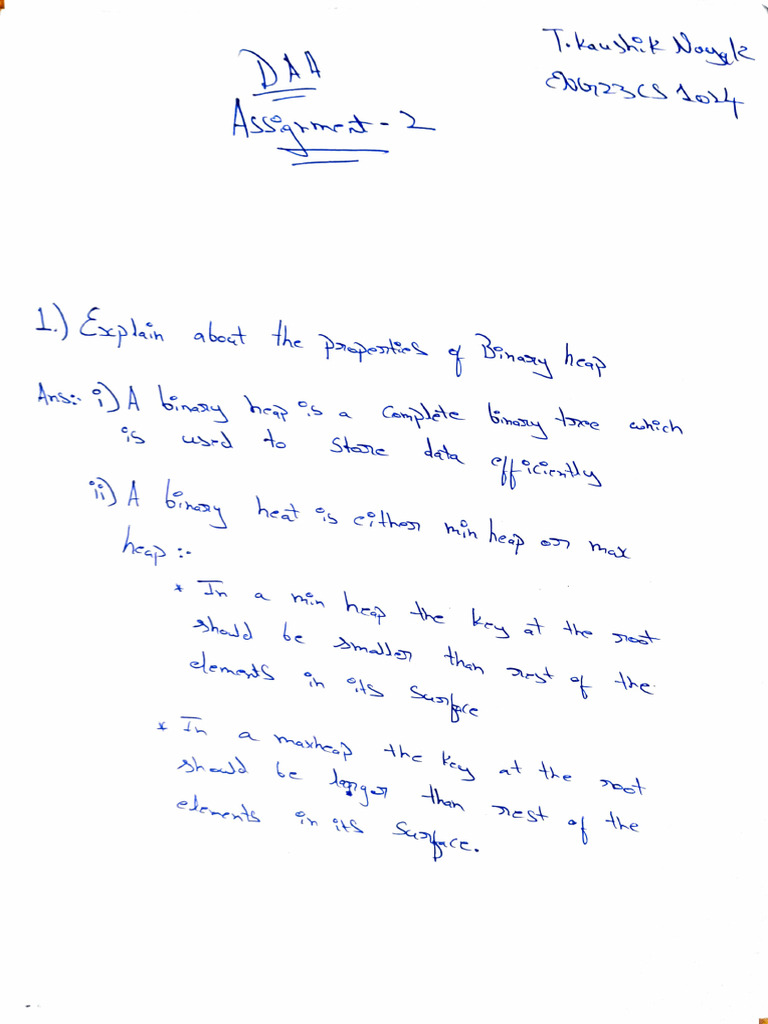 T. Kaushik Nayak
ENG23CS1024
DAA
Assignment - 2
1.) Explain about the properties of Binary heap
Ans:- i) A binary heap is a complete binary tree which
is used to store data efficiently
ii) A binary heat is either min heap or max
heap :-
* In a min heap the key at the root
should be smaller than rest of the
elements in its surface
* In a maxheap the key at the root
should be larger than rest of the
elements in its surface.